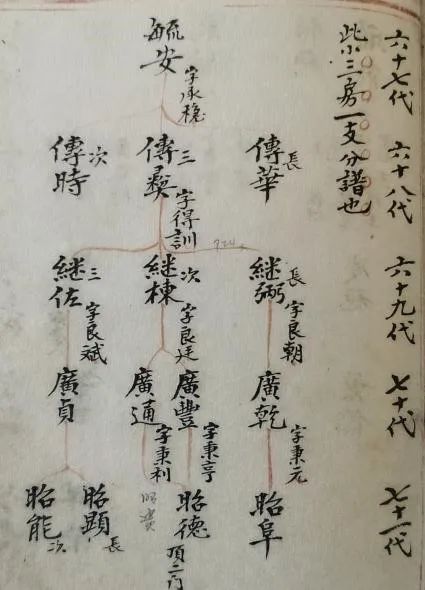 六十七代
六十八代
六十九代
七十代
七十一代
此小三房一支分譜也
毓安
字承穩
長
傳華
三
傳彜
字得訓
次
傳時
長
継弼
字良朝
次
継棟
字良廷
三
継佐
字良斌
廣乾
字秉元
廣豐
字秉亨
廣通
字秉利
廣貞
昭阜
昭德
頂二门
昭顕
長
昭能
次